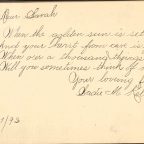 Dear Sarah
When the golden sun is set
And your heart from care is
When over a thousand things
Will you sometimes think of
Your loving
Sadie M.
/93